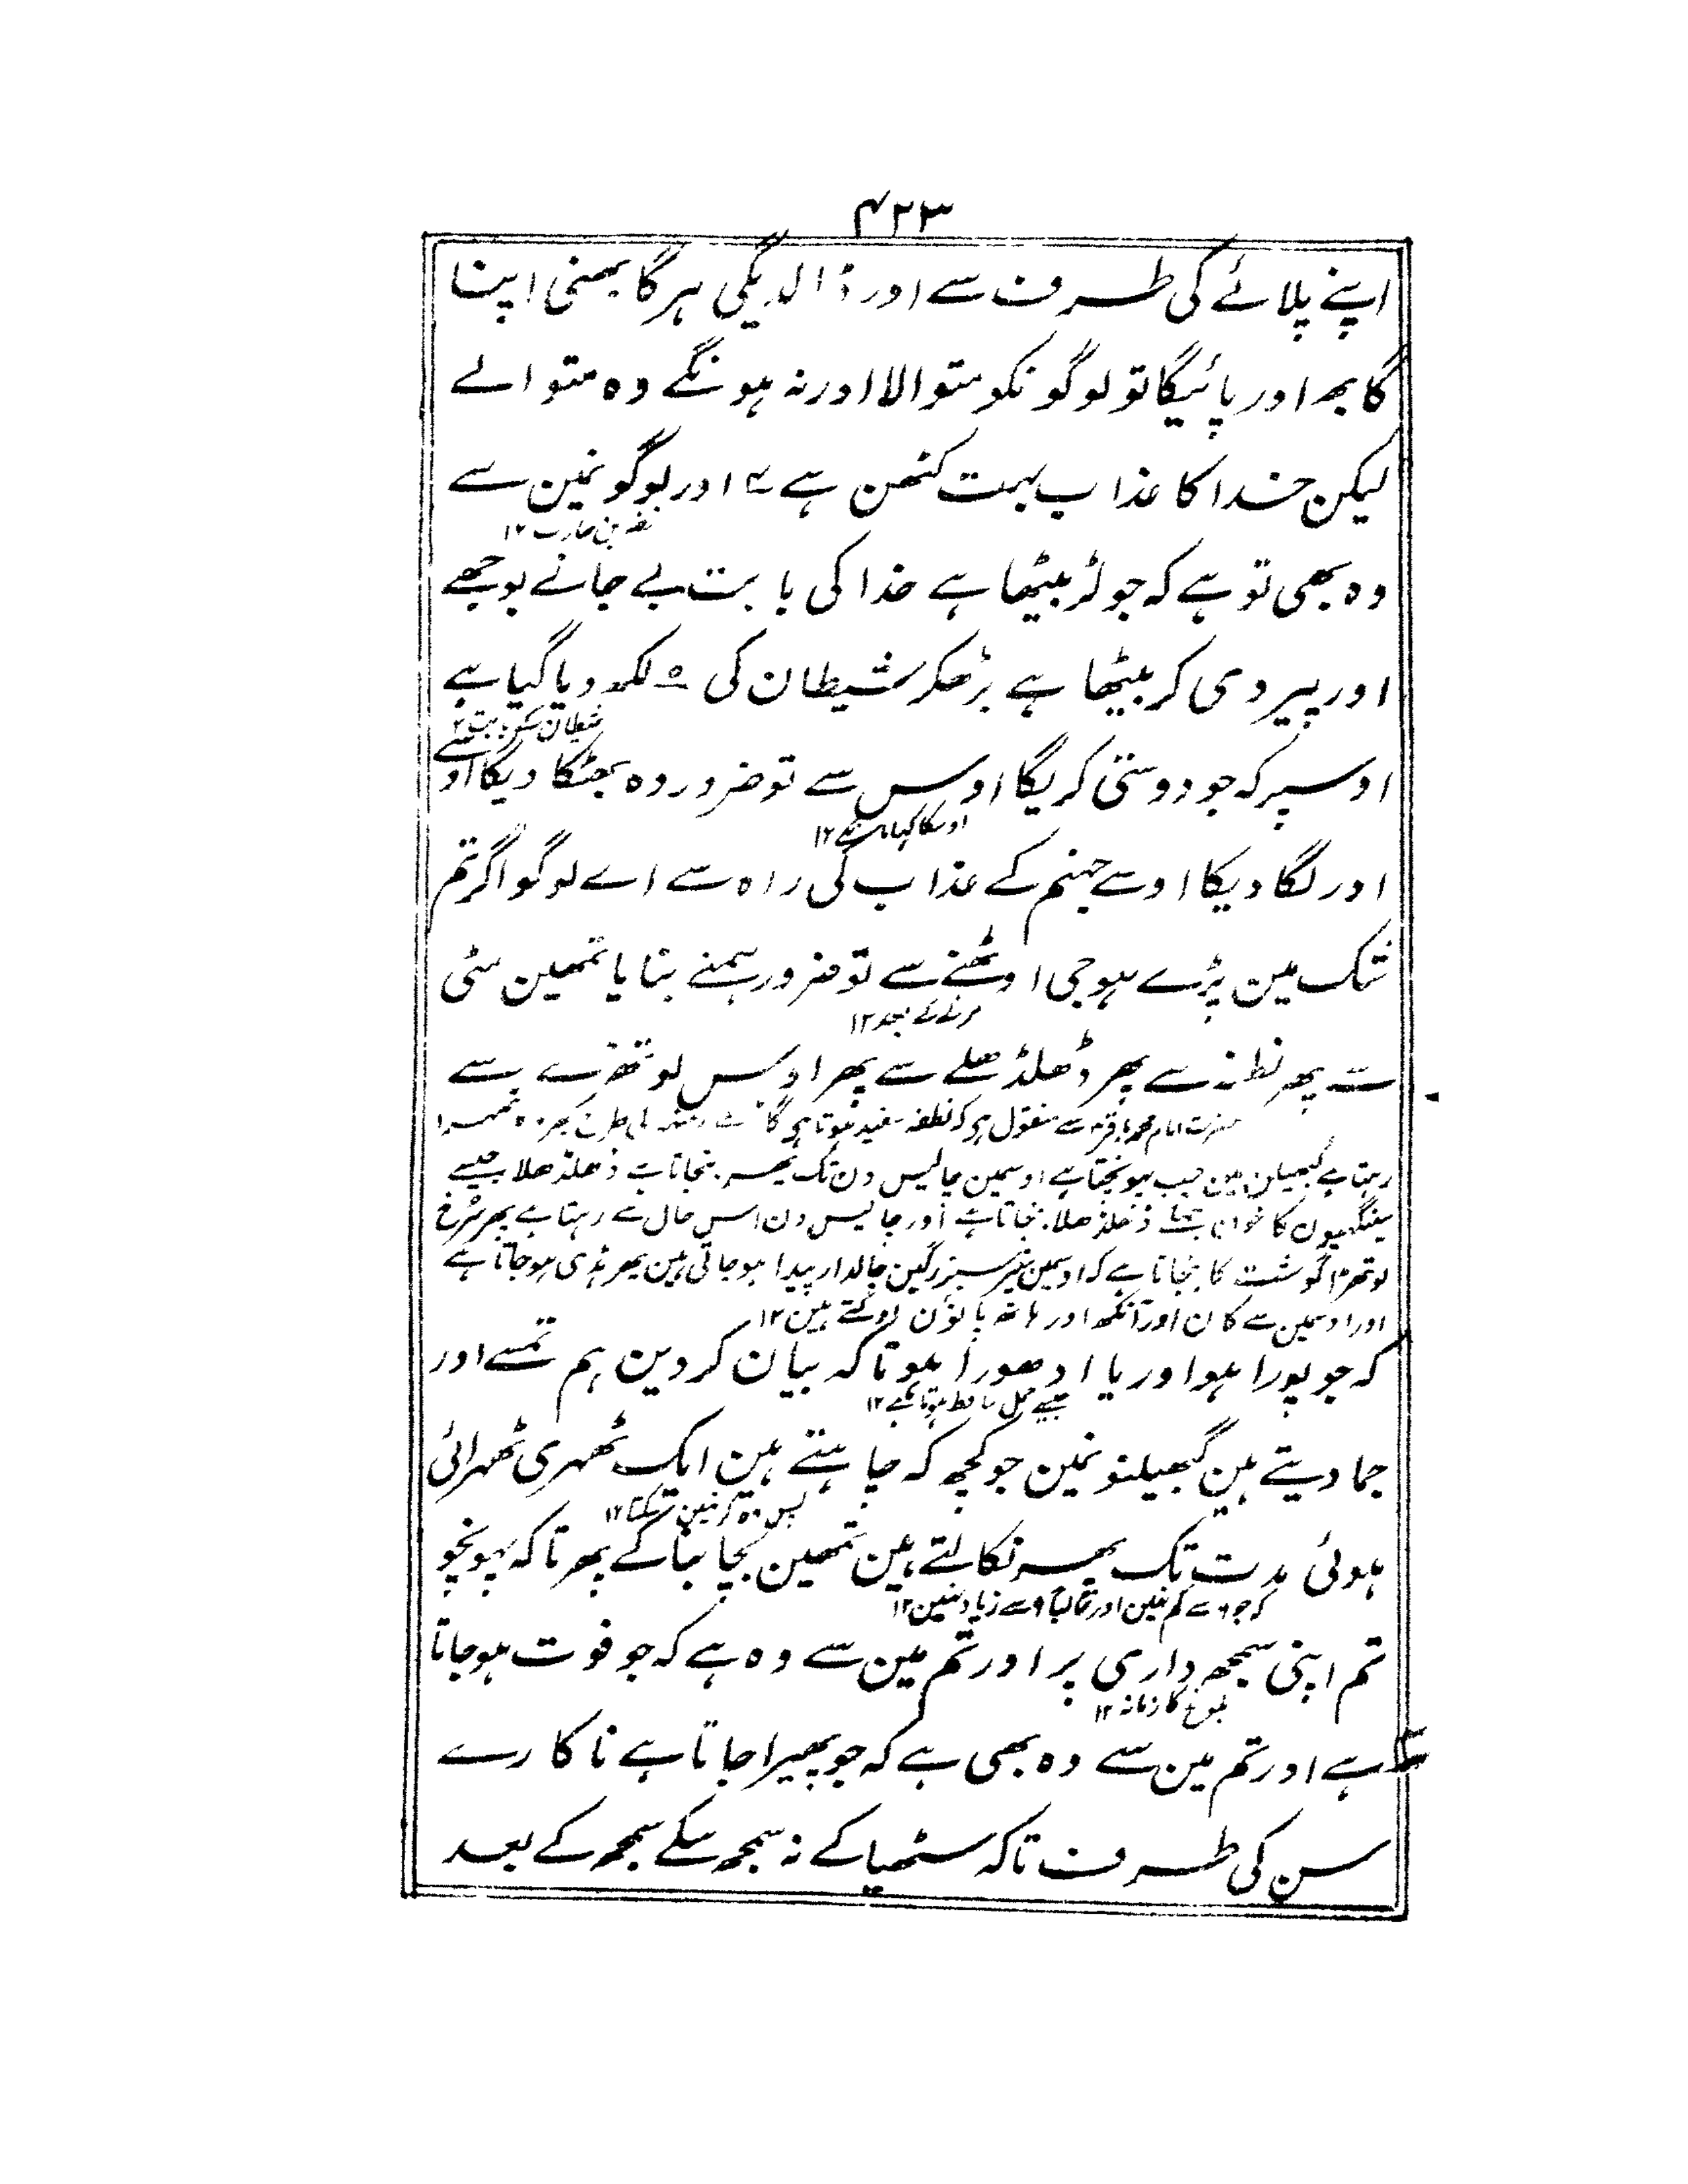 ۴۲۳
اپنے پلائے کی طرف سے اور ڈالدیگی ہر گابھنی اپنا
گابھ اور پائیگا تو لوگونکو متوالا اور نہ ہونگے وہ متوالے
لیکن خدا کا عذاب بہت کٹھن ہے ۴ اور لوگونمین سے
نضر بن حارث ۱۲
وہ بھی تو ہے کہ جو لڑ بیٹھا ہے خدا کی بابت بے جانے بوجھے
اور پیروی کر بیٹھا ہے ہر سرکش شیطان کی ۵ لکھ دیا گیا ہے
اوسپر کہ جو دوستی کریگا اوس سے تو ضرور وہ بھٹکا دیگا اوسے
اوسکا کہا مانے ۱۲
اور لگا دیگا اوسے جہنم کے عذاب کی راہ سے اے لوگو اگر تم
شک مین پڑے ہو جی اوٹھنے سے تو ضرور ہمنے بنایا تمھین مٹی
مرنے کے بعد ۱۲
سے پھر نطفہ سے پھر ڈھلڈھلے سے پھر اوس لوتھڑے سے
حضرت امام محمد باقرؑ سے منقول ہی کہ نطفہ سفید ہوتا ہی گاڑھے
رہتا ہے گبھیلن مین جب پہونچتا ہے اوسمین چالیس دن تک پھر بنجاتا ہے ڈھلڈھلا جیسے
سینگھیون کا خون جمے ڈھلڈھلا بنجاتا ہے اور چالیس دن اس حال سے رہتا ہے پھر سُرخ
لوتھڑا گوشت کا بنجاتا ہے کہ اوسمین سبز رگین جالدار پیدا ہو جاتی ہین پھر ہڈی ہو جاتا ہے
اور اوسمین سے کان اور آنکھ اور ہاتھ پانؤن اوگتے ہین ۱۲
کہ جو پورا ہو اور یا ادھورا ہو تاکہ بیان کر دین ہم تمسے اور
جیسے حمل ساقط ہوتا ہے ۱۲
جما دیتے ہین گبھیلنونمین جو کچھ کہ چاہتے ہین ایک ٹھہری ٹھہرائی
پس وہ گر نہین سکتا ۱۲
ہوئی مدت تک پھر نکالتے ہین تمھین بچا بنا کے پھر تاکہ پہونچو
کہ جو ۶ سے کم نہین اور غالباً ۹ سے زیادہ نہین ۱۲
تم اپنی سمجھ داری پر اور تم مین سے وہ ہے کہ جو فوت ہو جاتا
بلوغ کا زمانہ ۱۲
ہے اور تم مین سے وہ بھی ہے کہ جو پھیرا جاتا ہے ناکارے
سن کی طرف تاکہ سٹھیا کے نہ سمجھ سکے سمجھ کے بعد